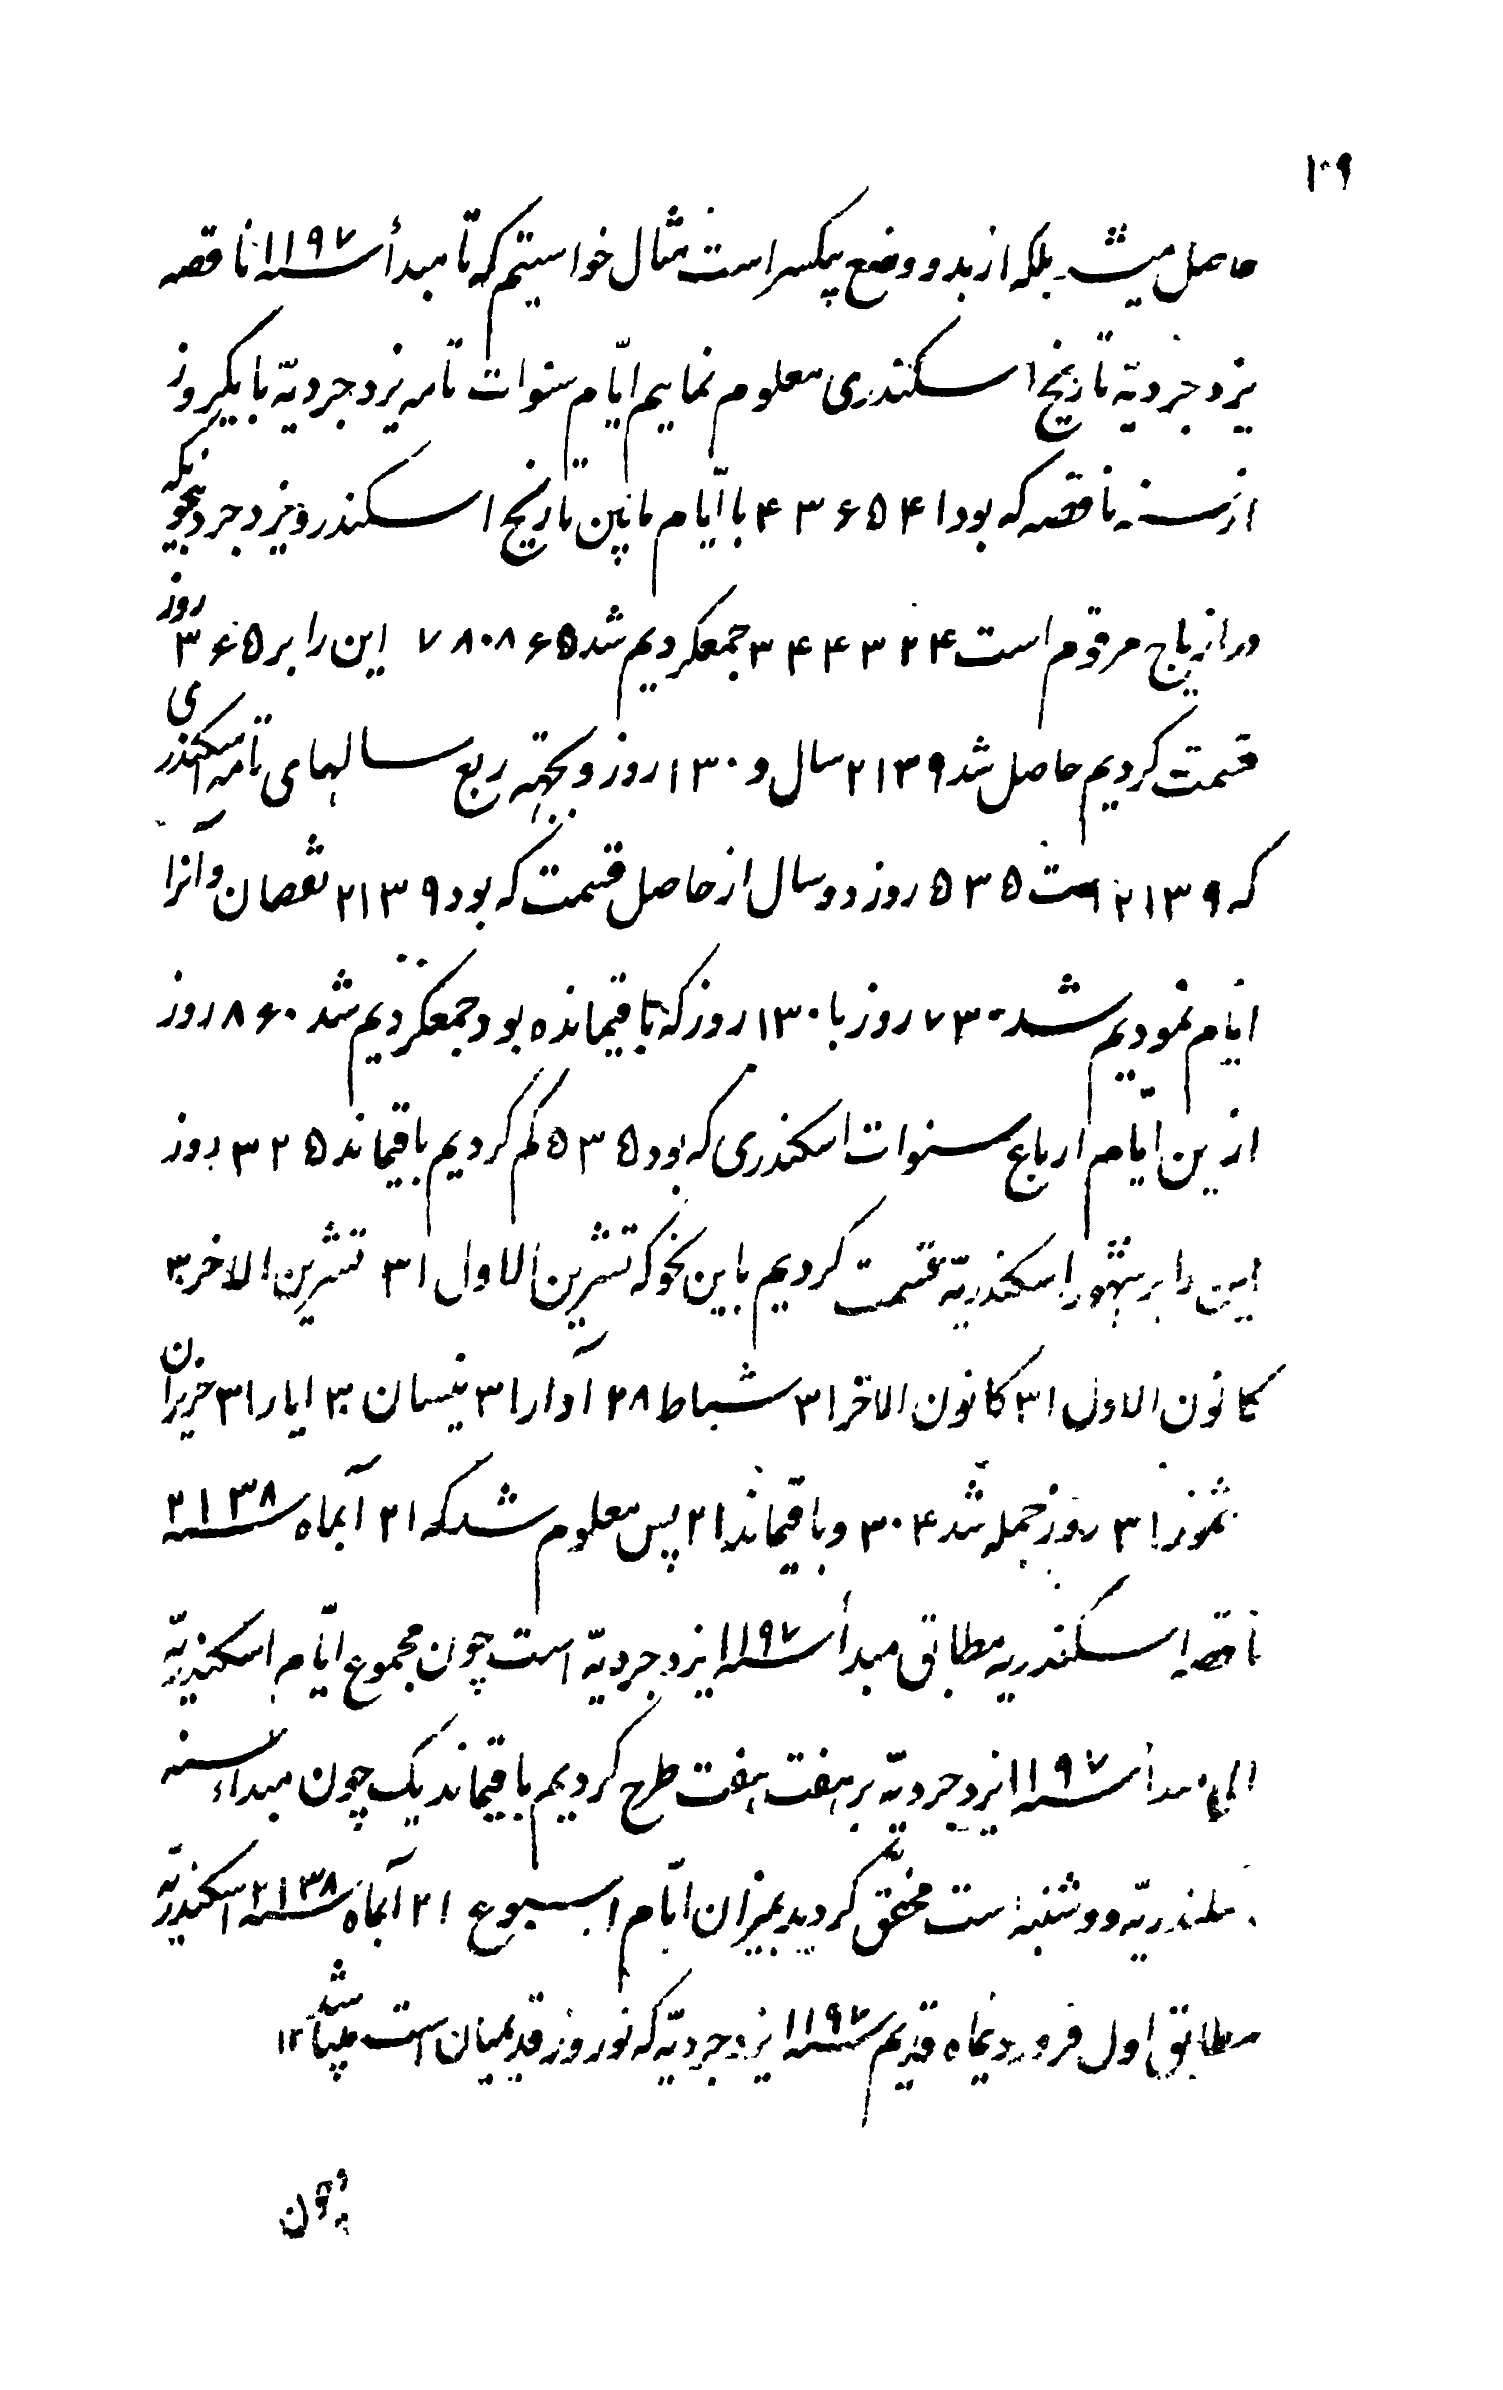 ۱۰۹
حاصل میشد بلکه از بدو وضع پیکسر است مثال خواستیم که تا مبدأ سنه ۱۱۹۷ ناقصه
یزدجردیّه تاریخ اسکندری معلوم نماییم ایّام سنوات تامه یزدجردیّه با یکروز
از سنه ناقصه که بود ۴۳۶۵۴۱ با ایّام مابین تاریخ اسکندر و یزدجرد بنحویکه
در ازیاج مرقوم است ۳۴۴۳۲۴ جمعکردیم شد ۷۸۰۸۶۵ این را بر ۳۶۵ روز
قسمت کردیم حاصل شد ۲۱۳۹ سال و ۱۳۰ روز و بجهته ربع سالهای تامه اسکندری
که ۲۱۳۹ است ۵۳۵ روز دو سال از حاصل قسمت که بود ۲۱۳۹ نقصان و آنرا
ایام نمودیم شد ۷۳۰ روز با ۱۳۰ روز که باقیمانده بود جمعکردیم شد ۸۶۰ روز
ازین ایّام ارباع سنوات اسکندری که بود ۵۳۵ کم کردیم باقیماند ۳۲۵ روز
این را بر شهور اسکندریّه قسمت کردیم باین نحو که تشرین الاول ۳۱ تشرین الاخر ۳۰
کانون الاول ۳۱ کانون الاخر ۳۱ شباط ۲۸ آدار ۳۱ نیسان ۳۰ ایار ۳۱ حزیران
تموز ۳۱ روز جمله شد ۳۰۴ و باقیماند ۲۱ پس معلوم شد که ۲۱ آبماه سنه ۲۱۳۸
ناقصه اسکندریه مطابق مبدأ سنه ۱۱۹۷ یزدجردیّه است چون مجموع ایّام اسکندریّه
الی مبدأ سنه ۱۱۹۷ یزدجردیّه بر هفت هفت طرح کردیم باقیماند یک چون مبداء سنه
اسکندریّه دوشنبه است محقّق گردید بمیزان ایّام اسبوع ۲۱ آبماه سنه ۲۱۳۸ اسکندریّه
مطابق اول فروردینماه قدیم سنه ۱۱۹۷ یزدجردیّه که نوروز قدیمیان است میباشد ۱۲